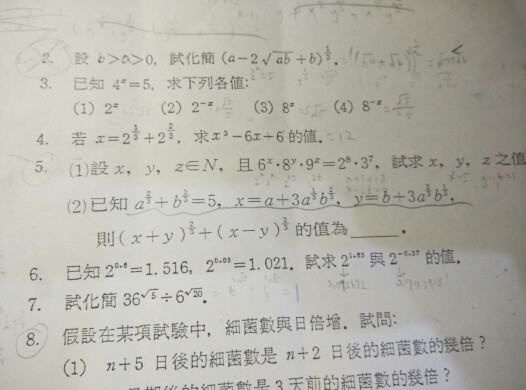 2. 設 b>a>0, 試化簡 (a-2√ab+b)^{1/2}.
3. 已知 4^x=5, 求下列各值:
(1) 2^x (2) 2^{-x} (3) 8^x (4) 8^{-x}
4. 若 x=2^{1/3}+2^{2/3}, 求x³-6x+6的值. =12
5. (1)設x, y, z∈N, 且6^x·8^y·9^z=2^8·3^7, 試求x, y, z之值
(2)已知 a^{2/3}+b^{2/3}=5, x=a+3a^{1/3}b^{2/3}, y=b+3a^{2/3}b^{1/3},
則(x+y)^{2/3}+(x-y)^{2/3} 的值為____.
6. 已知2^{0.6}=1.516, 2^{0.03}=1.021. 試求2^{1.63}與2^{-0.37}的值.
7. 試化簡36^{√5}÷6^{√20}. =1
8. 假設在某項試驗中, 細菌數與日倍增. 試問:
(1) n+5 日後的細菌數是 n+2 日後的細菌數的幾倍?
日期後的細菌數是3天前的細菌數的幾倍?